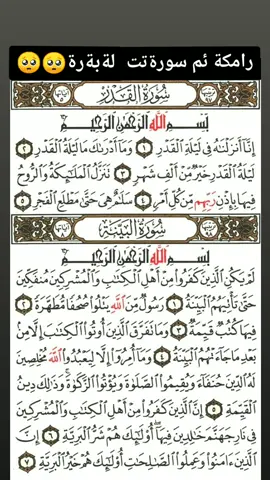 رامكة ئم سورةتت لةبةرة🥺🥺
سُورَةُ الْقَدْرِ
بِسْمِ اللَّهِ الرَّحْمَٰنِ الرَّحِيمِ
إِنَّا أَنزَلْنَاهُ فِي لَيْلَةِ الْقَدْرِ ١ وَمَا أَدْرَاكَ مَا لَيْلَةُ الْقَدْرِ ٢
لَيْلَةُ الْقَدْرِ خَيْرٌ مِنْ أَلْفِ شَهْرٍ ٣ تَنَزَّلُ الْمَلَائِكَةُ وَالرُّوحُ
فِيهَا بِإِذْنِ رَبِّهِم مِن كُلِّ أَمْرٍ ٤ سَلَامٌ هِيَ حَتَّىٰ مَطْلَعِ الْفَجْرِ ٥
سُورَةُ الْبَيِّنَةِ
بِسْمِ اللَّهِ الرَّحْمَٰنِ الرَّحِيمِ
لَمْ يَكُنِ الَّذِينَ كَفَرُوا مِنْ أَهْلِ الْكِتَابِ وَالْمُشْرِكِينَ مُنفَكِّينَ
حَتَّىٰ تَأْتِيَهُمُ الْبَيِّنَةُ ١ رَسُولٌ مِنَ اللَّهِ يَتْلُوا صُحُفًا مُطَهَّرَةً ٢
فِيهَا كُتُبٌ قَيِّمَةٌ ٣ وَمَا تَفَرَّقَ الَّذِينَ أُوتُوا الْكِتَابَ إِلَّا مِن
بَعْدِ مَا جَاءَتْهُمُ الْبَيِّنَةُ ٤ وَمَا أُمِرُوا إِلَّا لِيَعْبُدُوا اللَّهَ مُخْلِصِينَ
لَهُ الدِّينَ حُنَفَاءَ وَيُقِيمُوا الصَّلَوٰةَ وَيُؤْتُوا الزَّكَوٰةَ وَذَٰلِكَ دِينُ
الْقَيِّمَةِ ٥ إِنَّ الَّذِينَ كَفَرُوا مِنْ أَهْلِ الْكِتَابِ وَالْمُشْرِكِينَ
فِي نَارِ جَهَنَّمَ خَالِدِينَ فِيهَا أُولَٰئِكَ هُمْ شَرُّ الْبَرِيَّةِ ٦ إِنَّ
الَّذِينَ ءَامَنُوا وَعَمِلُوا الصَّالِحَاتِ أُولَٰئِكَ هُمْ خَيْرُ الْبَرِيَّةِ ٧